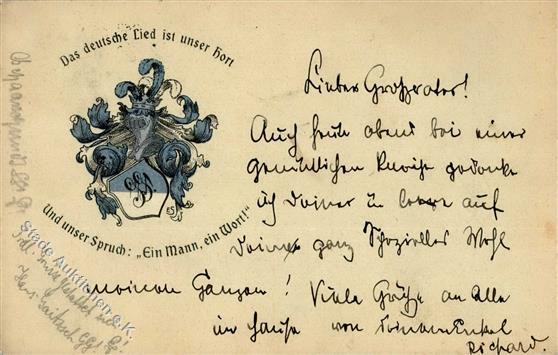 Das deutsche Lied ist unser Hort
Und unser Spruch: „Ein Mann, ein Wort!"
Lieber Großvater!
Auch heute abend bei einer
gemütlichen Kneipe gedenke
ich Deiner u. leere auf
Deiner ganz Spezielles Wohl
meinen Ganzen! Viele Grüße an Alle
im Hause von Deinem Enkel
Richard.
Stade Auktionen e.K.